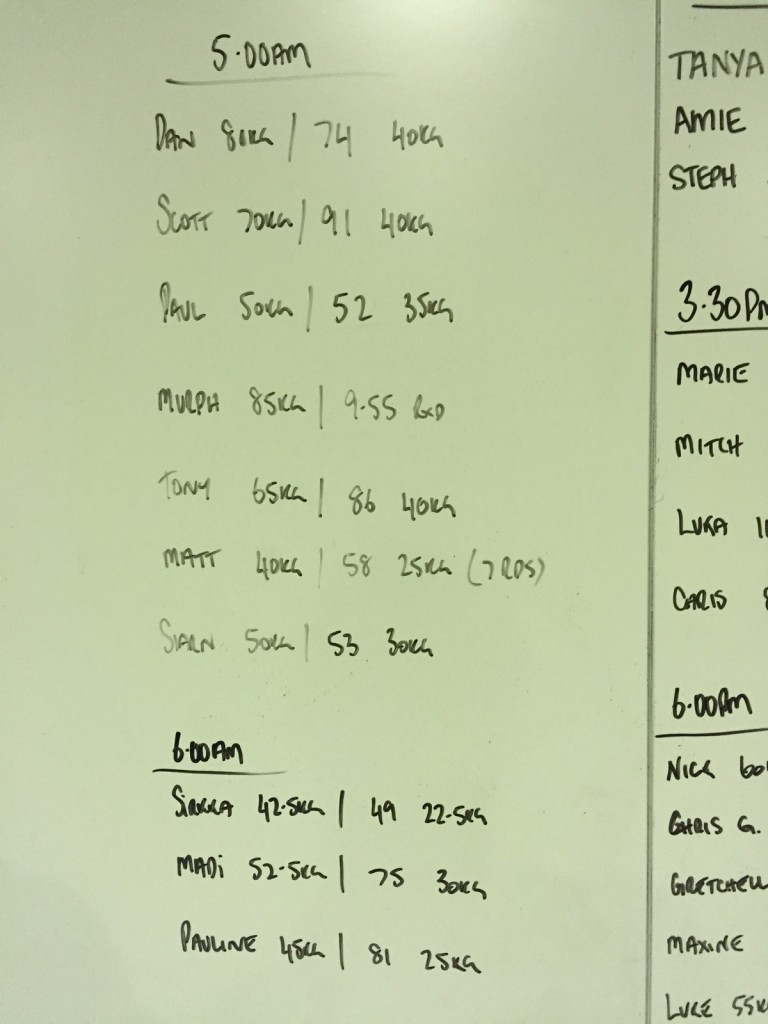 5.00AM
DAN 80KG | 74 40KG
SCOTT 70KG | 91 40KG
PAUL 50KG | 52 35KG
MURPH 85KG | 9.55 RXD
TONY 65KG | 86 40KG
MATT 40KG | 58 25KG (7 RDS)
SIARN 50KG | 53 30KG
6.00AM
SIRKKA 42.5KG | 49 22.5KG
MADi 52.5KG | 75 30KG
PAULINE 45KG | 81 25KG
TANYA
AMIE
STEPH
3.30PM
MARIE
MITCH
LUKA
CARIS
6.00PM
NICK 60
CHRIS G.
GRETCHELL
MAXINE
LUKE 55K